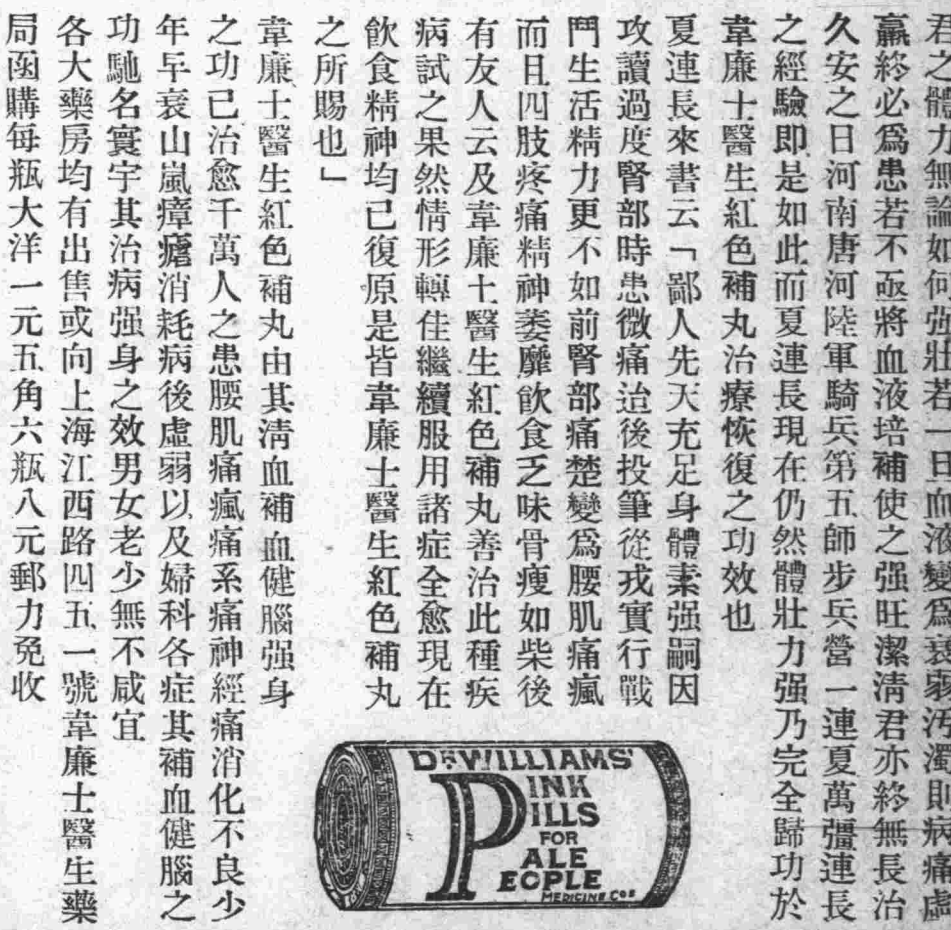 君之體力無論如何强壯若一日血液變爲衰弱汚濁則病痛虛
羸終必爲患若不亟將血液培補使之强旺潔淸君亦終無長治
久安之日河南唐河陸軍騎兵第五師步兵營一連夏萬彊連長
之經驗即是如此而夏連長現在仍然體壯力强乃完全歸功於
韋廉士醫生紅色補丸治療恢復之功效也
夏連長來書云「鄙人先天充足身體素强嗣因
攻讀過度腎部時患微痛迨後投筆從戎實行戰
鬥生活精力更不如前腎部痛楚變爲腰肌痛瘋
而且四肢疼痛精神萎靡飮食乏味骨瘦如柴後
有友人云及韋廉士醫生紅色補丸善治此種疾
病試之果然情形轉佳繼續服用諸症全愈現在
飮食精神均已復原是皆韋廉士醫生紅色補丸
之所賜也」
韋廉士醫生紅色補丸由其淸血補血健腦强身
之功已治愈千萬人之患腰肌痛瘋痛系痛神經痛消化不良少
年早衰山嵐瘴瘧消耗病後虛弱以及婦科各症其補血健腦之
功馳名寰宇其治病强身之效男女老少無不咸宜
各大藥房均有出售或向上海江西路四五一號韋廉士醫生藥
局函購每瓶大洋一元五角六瓶八元郵力免收
DR WILLIAMS'
PINK
PILLS
FOR
PALE
PEOPLE
MEDICINE Co.